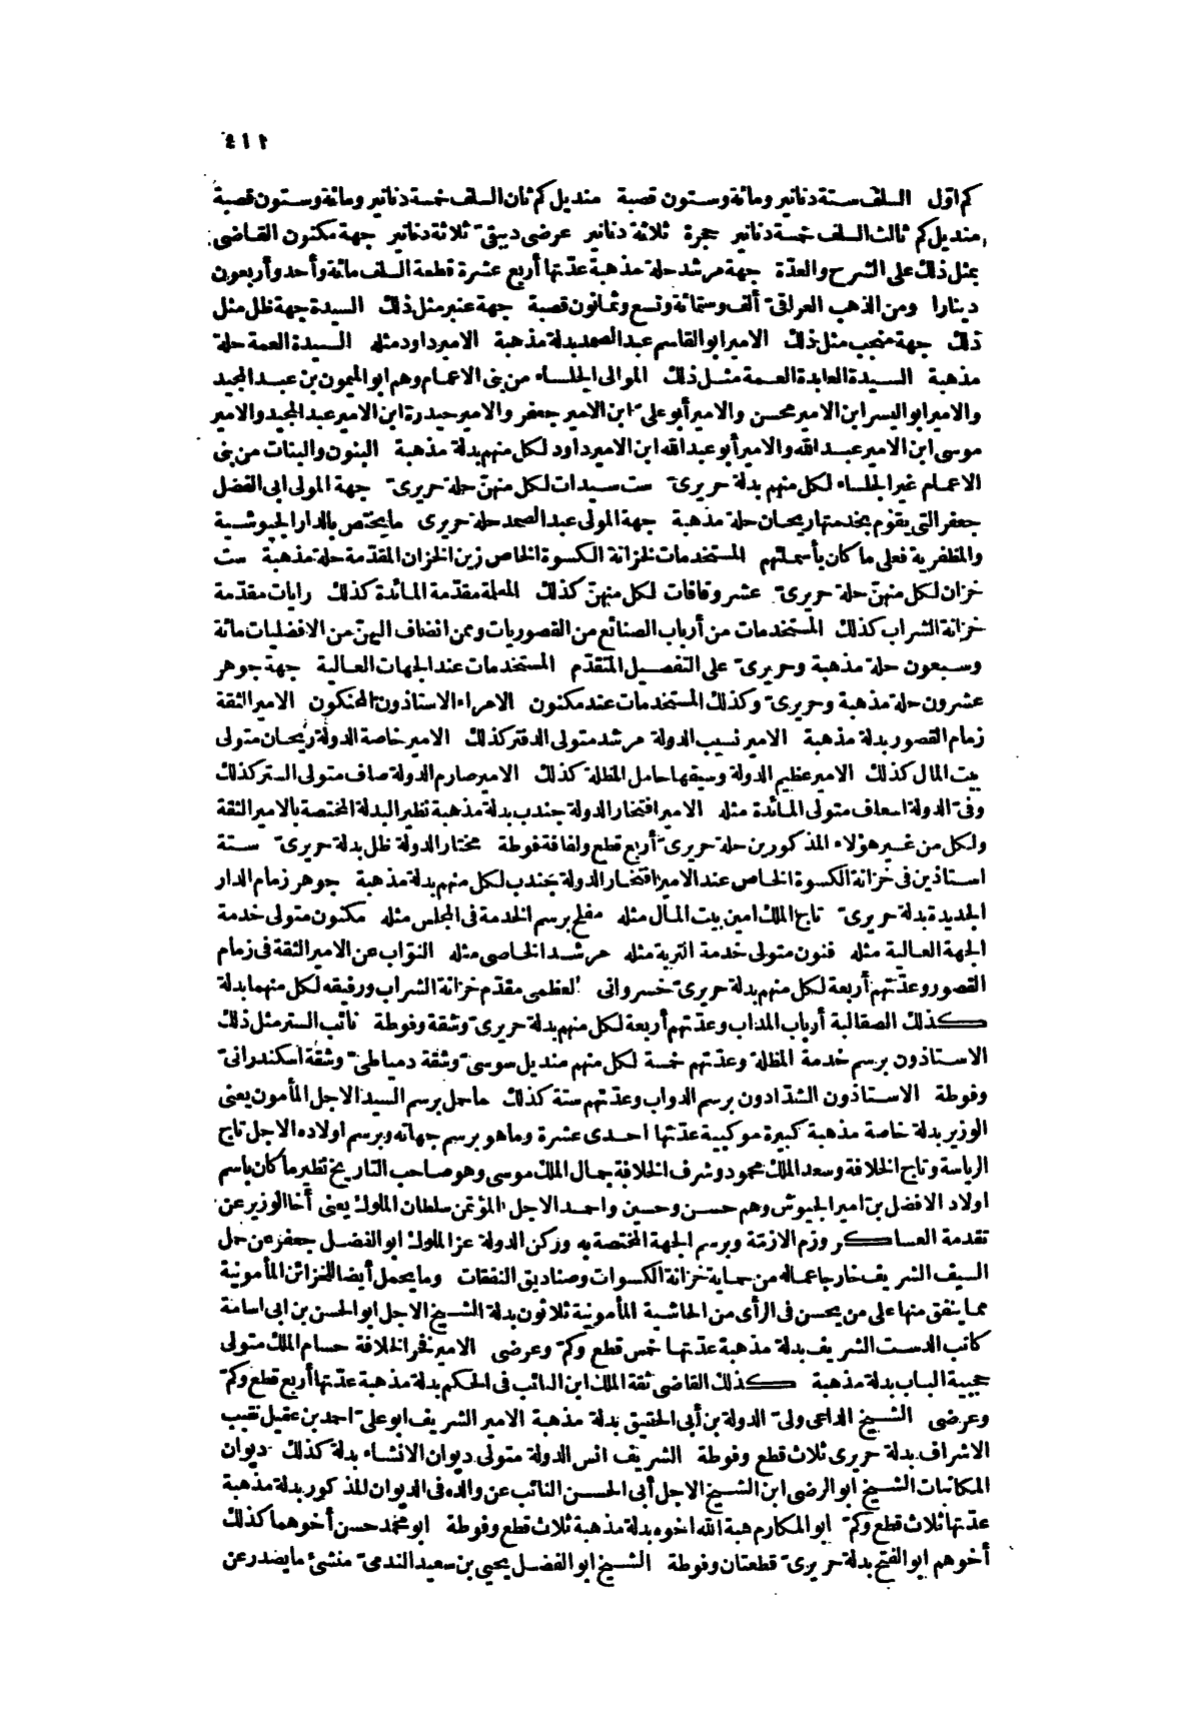 ٤١٢
كم اوّل السلف ستة دنانير ومائة وستون قصبة منديل كم ثان السلف خمسة دنانير ومائة وستون قصبة
منديل كم ثالث السلف خمسة دنانير حجرة ثلاثة دنانير عرضى ديبقىّ ثلاثة دنانير جهة مكنون القاضى
بمثل ذلك على الشرح والعدّة جهة مرشد حلة مذهبة عدّتها أربع عشرة قطعة السلف مائة وأحد وأربعون
دينارا ومن الذهب العراقىّ ألف وستمائة وتسع وثمانون قصبة جهة عنبر مثل ذلك السيدة جهة ظل مثل
ذلك جهة منجب مثل ذلك الامير ابو القاسم عبد الصمد بدلة مذهبة الامير داود مثله السيدة العمة حلة
مذهبة السيدة العابدة العمة مثل ذلك الموالى الجلساء من بنى الاعمام وهم ابو الميمون بن عبد المجيد
والامير ابو اليسر ابن الامير محسن والامير أبو علىّ ابن الامير جعفر والامير حيدرة ابن الامير عبد المجيد والامير
موسى ابن الامير عبد الله والامير أبو عبد الله ابن الامير داود لكل منهم بدلة مذهبة البنون والبنات من بنى
الاعمام غير الجلساء لكل منهم بدلة حريرىّ ست سيدات لكل منهنّ حلة حريرىّ جهة المولى ابى الفضل
جعفر التى يقوم بخدمتها ريحان حلة مذهبة جهة المولى عبد الصمد حلة حريرى ما يختص بالدار الجيوشية
والمظفرية فعلى ما كان بأسمائهم المستخدمات لخزانة الكسوة الخاص زين الخزان المقدّمة حلة مذهبة ست
خزان لكل منهنّ حلة حريرىّ عشر وقافات لكل منهنّ كذلك المعلمة مقدّمة المائدة كذلك رايات مقدّمة
خزانة الشراب كذلك المستخدمات من أرباب الصنائع من القصوريات وممن انضاف اليهنّ من الافضليات مائة
وسبعون حلة مذهبة وحريرىّ على التفصيل المتقدّم المستخدمات عند الجهات العالية جهة جوهر
عشرون حلة مذهبة وحريرىّ وكذلك المستخدمات عند مكنون الامراء الاستاذون المحنكون الامير الثقة
زمام القصور بدلة مذهبة الامير نسيب الدولة مرشد متولى الدفتر كذلك الامير خاصة الدولة ريحان متولى
بيت المال كذلك الامير عظيم الدولة وسيفها حامل المظلة كذلك الامير صارم الدولة صاف متولى الستر كذلك
وفىّ الدولة اسعاف متولى المائدة مثله الامير افتخار الدولة جندب بدلة مذهبة نظير البدلة المختصة بالامير الثقة
ولكل من غير هؤلاء المذكورين حلة حريرىّ أربع قطع ولفافة فوطة مختار الدولة ظل بدلة حريرىّ ستة
استاذين فى خزانة الكسوة الخاص عند الامير افتخار الدولة جندب لكل منهم بدلة مذهبة جوهر زمام الدار
الجديدة بدلة حريرىّ تاج الملك امين بيت المال مثله مفلح برسم الخدمة فى المجلس مثله مكنون متولى خدمة
الجهة العالية مثله فنون متولى خدمة التربة مثله مرشد الخاصى مثله النوّاب عن الامير الثقة فى زمام
القصور وعدّتهم أربعة لكل منهم بدلة حريرىّ خسروانى العظمى مقدّم خزانة الشراب ورفيقه لكل منهما بدلة
كذلك الصقالبة أرباب المداب وعدّتهم أربعة لكل منهم بدلة حريرىّ وشقة وفوطة نائب الستر مثل ذلك
الاستاذون برسم خدمة المظلة وعدّتهم خمسة لكل منهم منديل سوسىّ وشقة دمياطىّ وشقة اسكندرانىّ
وفوطة الاستاذون الشدّادون برسم الدواب وعدّتهم ستة كذلك ما حمل برسم السيد الاجل المأمون يعنى
الوزير بدلة خاصة مذهبة كبيرة موكبية عدّتها احدى عشرة وما هو برسم جهاته وبرسم اولاده الاجل تاج
الرياسة وتاج الخلافة وسعد الملك محمود وشرف الخلافة جمال الملك موسى وهو صاحب التاريخ نظير ما كان باسم
اولاد الافضل بن امير الجيوش وهم حسن وحسين واحمد الاجل المؤتمن سلطان الملوك يعنى أخا الوزير عن
تقدمة العساكر وزم الازمّة وبرسم الجهة المختصة به وركن الدولة عز الملوك ابو الفضل جعفر عن حمل
السيف الشريف خارجا عما له من حماية خزانة الكسوات وصناديق النفقات وما يحمل أيضا للخزائن المأمونية
مما ينفق منها على من يحسن فى الرأى من الحاشية المأمونية ثلاثون بدلة الشيخ الاجل ابو الحسن بن ابى اسامة
كاتب الدست الشريف بدلة مذهبة عدّتها خمس قطع وكمّ وعرضى الامير فخر الخلافة حسام الملك متولى
حجبية الباب بدلة مذهبة كذلك القاضى ثقة الملك ابن النائب فى الحكم بدلة مذهبة عدّتها أربع قطع وكمّ
وعرضى الشيخ الداعى ولىّ الدولة بن أبى الحقيق بدلة مذهبة الامير الشريف ابو علىّ احمد بن عقيل نقيب
الاشراف بدلة حريرى ثلاث قطع وفوطة الشريف انس الدولة متولى ديوان الانشاء بدلة كذلك ديوان
المكاتبات الشيخ ابو الرضى ابن الشيخ الاجل أبى الحسن النائب عن والده فى الديوان المذكور بدلة مذهبة
عدّتها ثلاث قطع وكمّ ابو المكارم هبة الله اخوه بدلة مذهبة ثلاث قطع وفوطة ابو محمد حسن أخوهما كذلك
أخوهم ابو الفتح بدلة حريرىّ قطعتان وفوطة الشيخ ابو الفضل يحيى بن سعيد الندمىّ منشئ ما يصدر عن